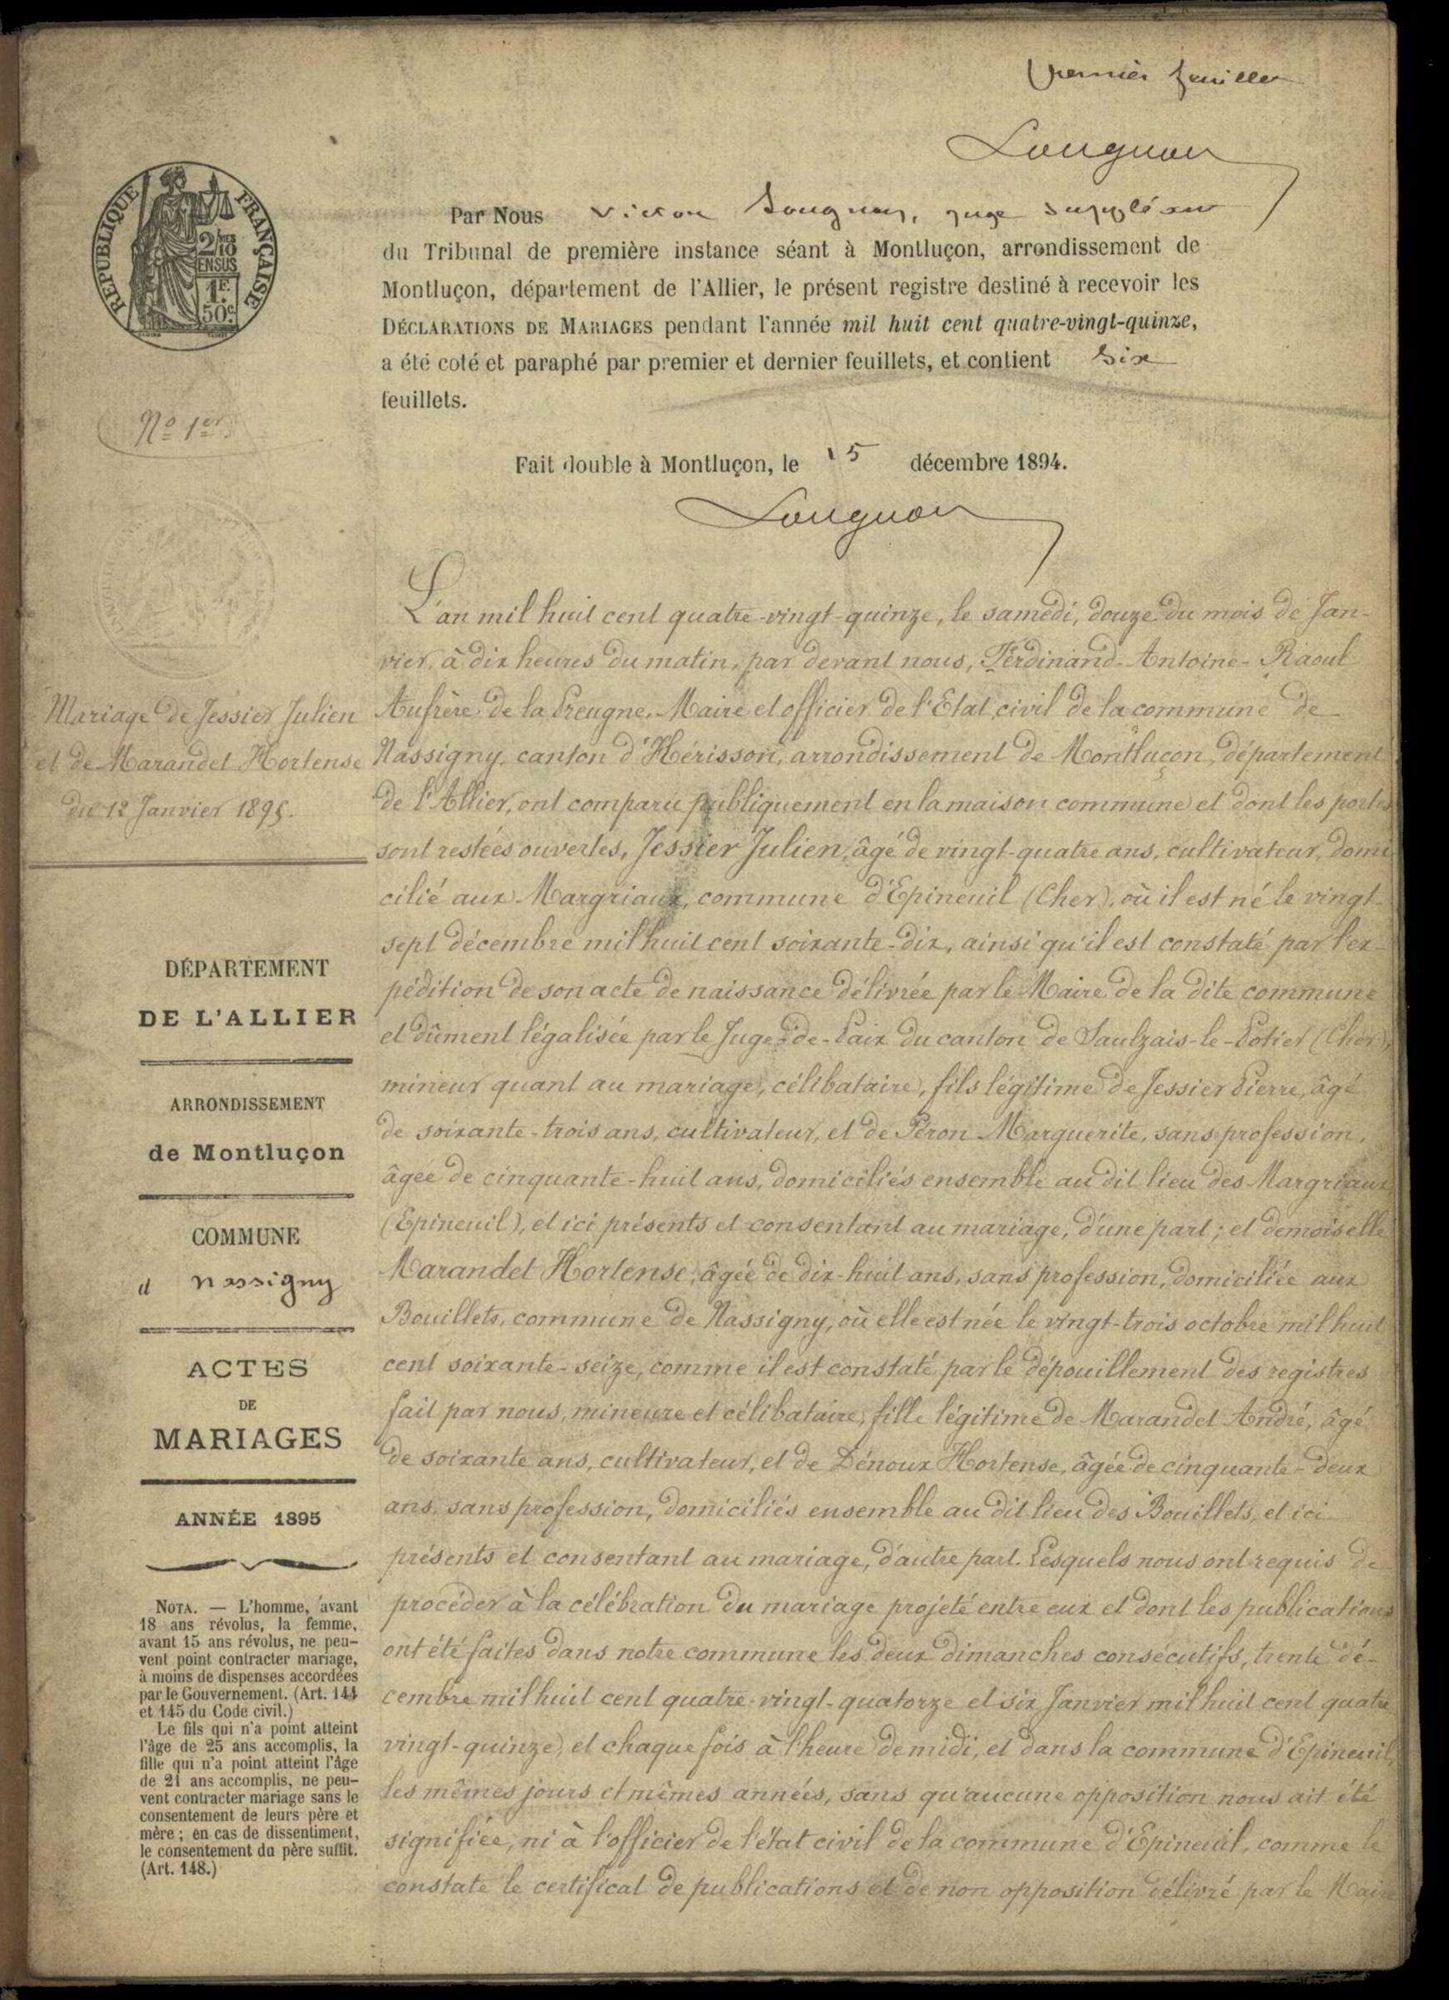 premier feuillet
Lougnon
RÉPUBLIQUE FRANÇAISE
2/10 EN SUS
1F 50c
Par Nous Victor Lougnon, juge suppléant
du Tribunal de première instance séant à Montluçon, arrondissement de
Montluçon, département de l'Allier, le présent registre destiné à recevoir les
DÉCLARATIONS DE MARIAGES pendant l'année mil huit cent quatre-vingt-quinze,
a été coté et paraphé par premier et dernier feuillets, et contient six
feuillets.
Fait double à Montluçon, le 15 décembre 1894.
Lougnon
No 1er
Mariage de Jessier Julien
et de Marandet Hortense
du 12 Janvier 1895.
DÉPARTEMENT
DE L'ALLIER
ARRONDISSEMENT
de Montluçon
COMMUNE
d Nassigny
ACTES
DE
MARIAGES
ANNÉE 1895
NOTA. — L'homme, avant
18 ans révolus, la femme,
avant 15 ans révolus, ne peu-
vent point contracter mariage,
à moins de dispenses accordées
par le Gouvernement. (Art. 144
et 145 du Code civil.)
Le fils qui n'a point atteint
l'âge de 25 ans accomplis, la
fille qui n'a point atteint l'âge
de 21 ans accomplis, ne peu-
vent contracter mariage sans le
consentement de leurs père et
mère ; en cas de dissentiment,
le consentement du père suffit.
(Art. 148.)
L'an mil huit cent quatre-vingt-quinze, le samedi, douze du mois de Jan-
vier, à dix heures du matin, par devant nous, Ferdinand-Antoine-Raoul
Aufrère de la Preugne, Maire et officier de l'Etat civil de la commune de
Nassigny, canton d'Hérisson, arrondissement de Montluçon, département
de l'Allier, ont comparu publiquement en la maison commune et dont les portes
sont restées ouvertes, Jessier Julien, âgé de vingt-quatre ans, cultivateur, domi
cilié aux Margriaux, commune d'Epineuil (Cher), où il est né le vingt-
sept décembre mil huit cent soixante-dix, ainsi qu'il est constaté par l'ex-
pédition de son acte de naissance délivrée par le Maire de la dite commune
et dûment légalisée par le Juge-de-Paix du canton de Saulzais-le-Potier (Cher),
mineur quant au mariage, célibataire, fils légitime de Jessier Pierre, âgé
de soixante-trois ans, cultivateur, et de Péron Marguerite, sans profession,
âgée de cinquante-huit ans, domiciliés ensemble au dit lieu des Margriaux
(Epineuil), et ici présents et consentant au mariage, d'une part ; et demoiselle
Marandet Hortense, âgée de dix-huit ans, sans profession, domiciliée aux
Bouillets, commune de Nassigny, où elle est née le vingt-trois octobre mil huit
cent soixante-seize, comme il est constaté par le dépouillement des registres
fait par nous, mineure et célibataire, fille légitime de Marandet André, âgé
de soixante ans, cultivateur, et de Dénoux Hortense, âgée de cinquante-deux
ans, sans profession, domiciliés ensemble au dit lieu des Bouillets, et ici
présents et consentant au mariage, d'autre part. Lesquels nous ont requis de
procéder à la célébration du mariage projeté entre eux et dont les publications
ont été faites dans notre commune les deux dimanches consécutifs, trente dé-
cembre mil huit cent quatre-vingt-quatorze et six Janvier mil huit cent quatre
vingt-quinze, et chaque fois à l'heure de midi, et dans la commune d'Epineuil,
les mêmes jours et mêmes années, sans qu'aucune opposition nous ait été
signifiée, ni à l'officier de l'état civil de la commune d'Epineuil, comme le
constate le certificat de publications et de non opposition délivré par le Maire